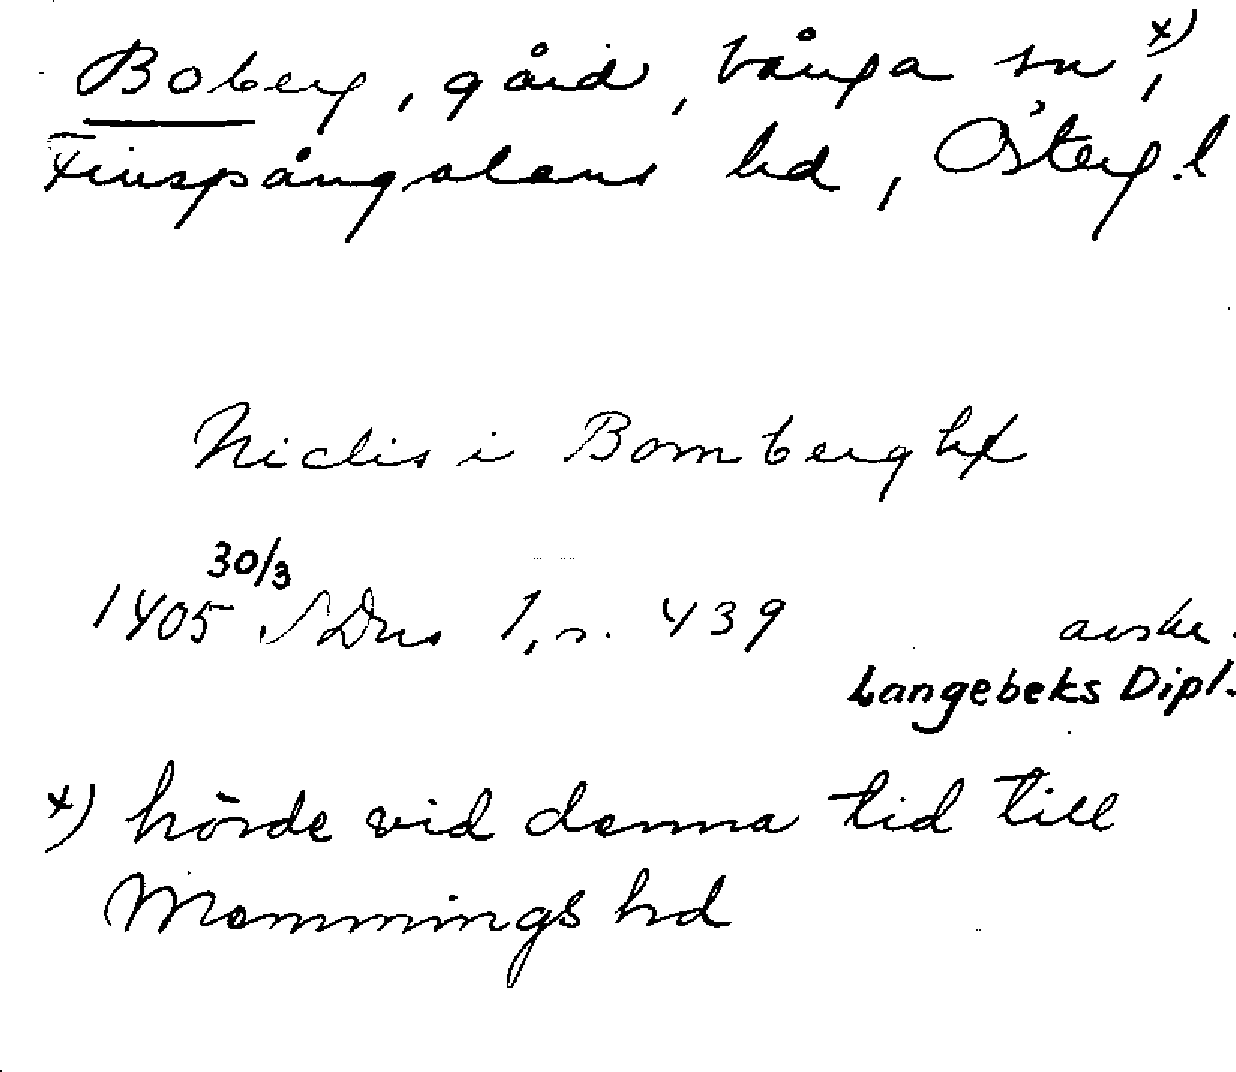 Boberg, gård, Vånga sn x),
Finspångaläns hd, Österg.l
Niclis i Bomberghx
1405 30/3 SDns 1, s. 439 avskr.
Langebeks Dipl.
x) hörde vid denna tid till
Memmings hd